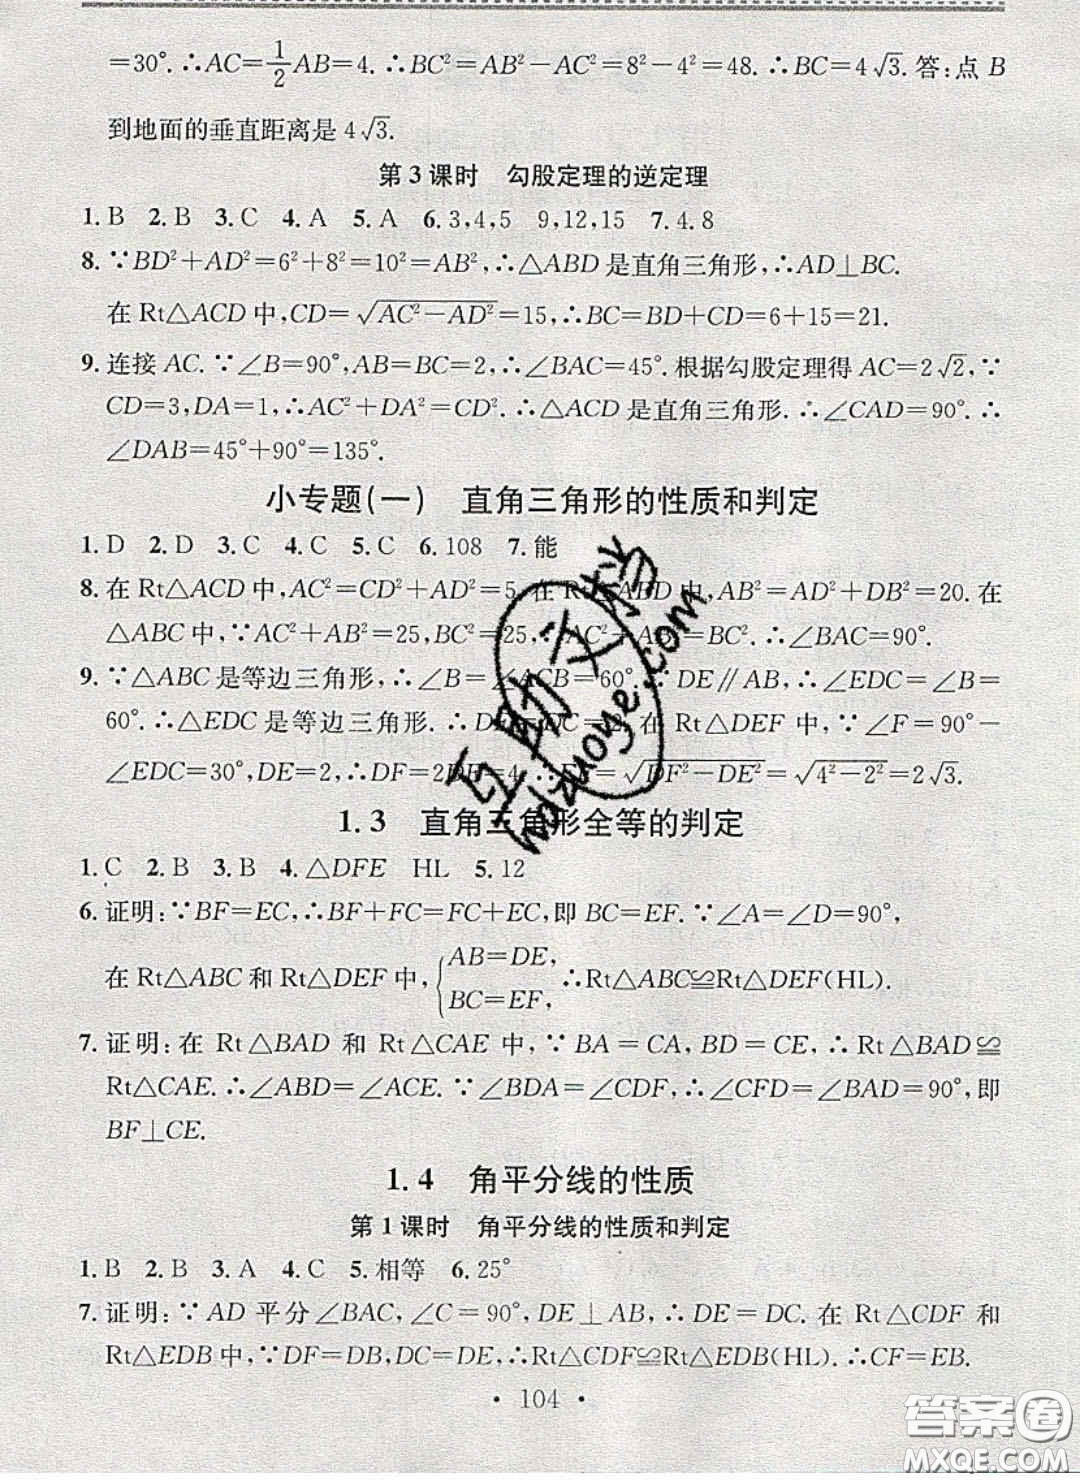 =30°.∴AC=1/2AB=4.∴BC²=AB²-AC²=8²-4²=48.∴BC=4√3.答:点B
到地面的垂直距离是4√3.
第3课时 勾股定理的逆定理
1.B 2.B 3.C 4.A 5.A 6.3,4,5 9,12,15 7.4.8
8.∵BD²+AD²=6²+8²=10²=AB²,∴△ABD是直角三角形,∴AD⊥BC.
在Rt△ACD中,CD=√(AC²-AD²)=15,∴BC=BD+CD=6+15=21.
9.连接AC.∵∠B=90°,AB=BC=2,∴∠BAC=45°.根据勾股定理得AC=2√2,∵
CD=3,DA=1,∴AC²+DA²=CD².∴△ACD是直角三角形.∴∠CAD=90°.∴
∠DAB=45°+90°=135°.
小专题(一) 直角三角形的性质和判定
1.D 2.D 3.C 4.C 5.C 6.108 7.能
8.在Rt△ACD中,AC²=CD²+AD²=5.在Rt△ABD中,AB²=AD²+DB²=20.在
△ABC中,∵AC²+AB²=25,BC²=25,∴AC²+AB²=BC².∴∠BAC=90°.
9.∵△ABC是等边三角形,∴∠B=∠ACB=60°.∵DE∥AB,∴∠EDC=∠B=
60°.∴△EDC是等边三角形.∴DE=DC=2.在Rt△DEF中,∵∠F=90°-
∠EDC=30°,DE=2,∴DF=2DE=4.∴EF=√(DF²-DE²)=√(4²-2²)=2√3.
1.3 直角三角形全等的判定
1.C 2.B 3.B 4.△DFE HL 5.12
6.证明:∵BF=EC,∴BF+FC=FC+EC,即BC=EF.∵∠A=∠D=90°,
在Rt△ABC和Rt△DEF中,{AB=DE, BC=EF, ∴Rt△ABC≌Rt△DEF(HL).
7.证明:在Rt△BAD和Rt△CAE中,∵BA=CA,BD=CE,∴Rt△BAD≌
Rt△CAE.∴∠ABD=∠ACE.∵∠BDA=∠CDF,∴∠CFD=∠BAD=90°,即
BF⊥CE.
1.4 角平分线的性质
第1课时 角平分线的性质和判定
1.B 2.B 3.A 4.C 5.相等 6.25°
7.证明:∵AD平分∠BAC,∠C=90°,DE⊥AB,∴DE=DC.在Rt△CDF和
Rt△EDB中,∵DF=DB,DC=DE,∴Rt△CDF≌Rt△EDB(HL).∴CF=EB.
·104·
互助文档
hdzuoye.com
答案圈
MXQE.COM